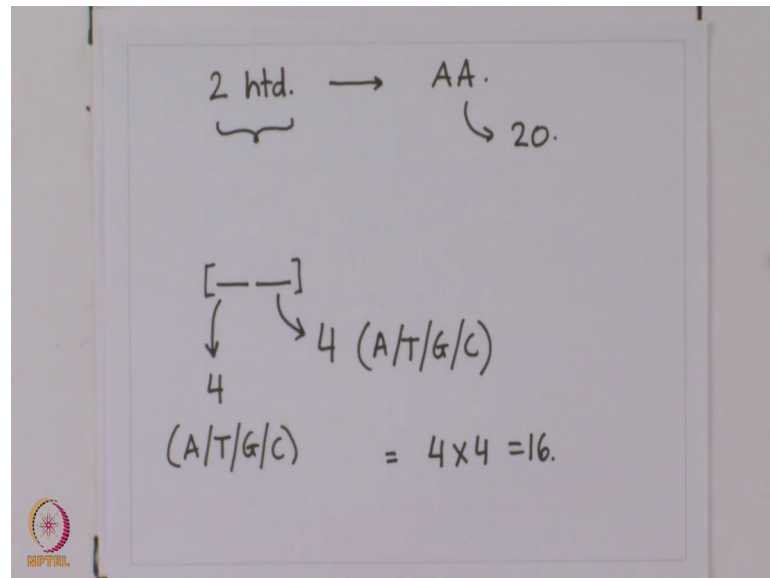 2 ntd. → AA.
20.
[_ _]
4 (A/T/G/C)
4
(A/T/G/C) = 4×4 =16.
NPTEL